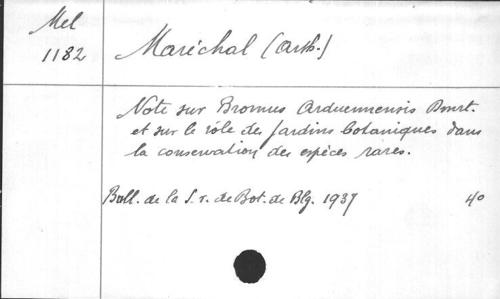 Mel
1182
Maréchal (Arth.)
Note sur Bromus Arduennensis Dmrt.
et sur le rôle des jardins botaniques dans
la conservation des espèces rares.
Bull. de la S. r. de Bot. de Blg. 1937 40